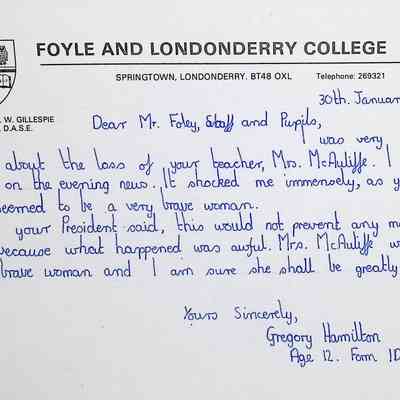 FOYLE AND LONDONDERRY COLLEGE
SPRINGTOWN, LONDONDERRY. BT48 OXL Telephone: 269321
W. GILLESPIE
D.A.S.E.
30th. Januar
Dear Mr. Foley, Staff and Pupils,
was very
about the loss of your teacher, Mrs. McAuliffe. I
on the evening news. It shocked me immensely, as y
seemed to be a very brave woman.
your President said, this would not prevent any m
because what happened was awful. Mrs. McAuliffe w
brave woman and I am sure she shall be greatly
Yours Sincerely,
Gregory Hamilton
Age 12. Form 1D